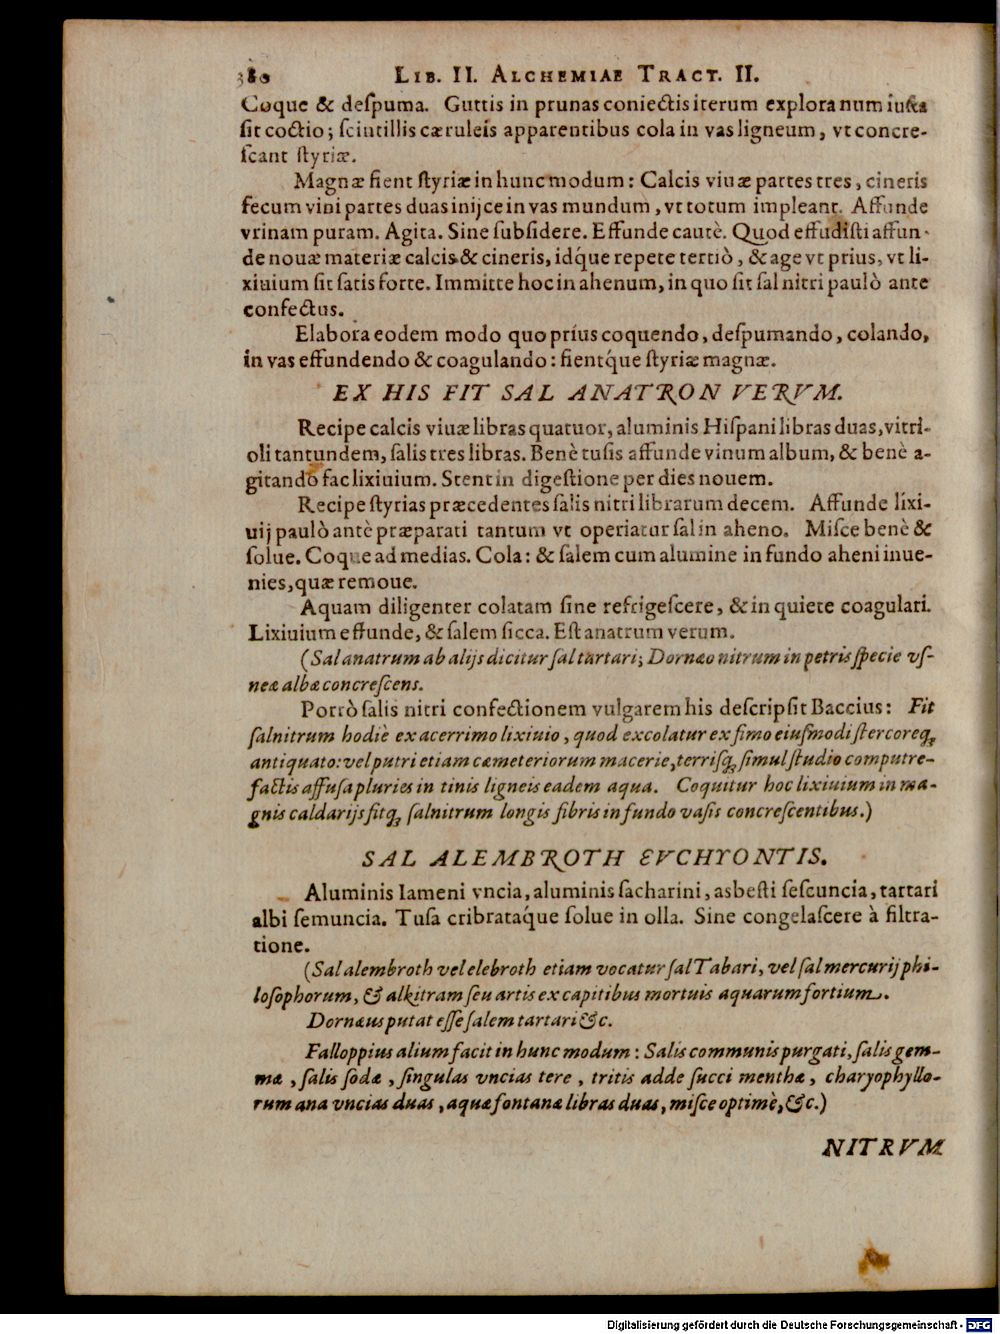 380 LIB. II. ALCHEMIAE TRACT. II.
Coque & deſpuma. Guttis in prunas coniectis iterum explora num iuſta
ſit coctio; ſcintillis cæruleis apparentibus cola in vas ligneum, vt concre-
ſcant ſtyriæ.
Magnæ fient ſtyriæ in hunc modum: Calcis viuæ partes tres, cineris
fecum vini partes duas inijce in vas mundum, vt totum impleant. Affunde
vrinam puram. Agita. Sine ſubſidere. Effunde cautè. Quod effudiſti affun-
de nouæ materiæ calcis & cineris, idq́ue repete tertiò, & age vt prius, vt li-
xiuium ſit ſatis forte. Immitte hoc in ahenum, in quo ſit ſal nitri paulò ante
confectus.
Elabora eodem modo quo príus coquendo, deſpumando, colando,
in vas effundendo & coagulando: fientq́ue ſtyriæ magnæ.
EX HIS FIT SAL ANATRON VERVM.
Recipe calcis viuæ libras quatuor, aluminis Hiſpani libras duas, vitri-
oli tantundem, ſalis tres libras. Benè tuſis affunde vinum album, & benè a-
gitando fac lixiuium. Stent in digeſtione per dies nouem.
Recipe ſtyrias præcedentes ſalis nitri librarum decem. Affunde lixi-
uij paulò antè præparati tantum vt operiatur ſal in aheno. Miſce benè &
ſolue. Coque ad medias. Cola: & ſalem cum alumine in fundo aheni inue-
nies, quæ remoue.
Aquam diligenter colatam ſine refrigeſcere, & in quiete coagulari.
Lixiuium effunde, & ſalem ſicca. Eſt anatrum verum.
(Sal anatrum ab alijs dicitur ſal tartari; Dornæo nitrum in petris ſpecie vſ-
neæ albæ concreſcens.
Porrò ſalis nitri confectionem vulgarem his deſcripſit Baccius: Fit
ſalnitrum hodiè ex acerrimo lixiuio, quod excolatur ex fimo eiuſmodi ſtercoreq;
antiquato: vel putri etiam cæmeteriorum macerie, terriſq; ſimul ſtudio computre-
factis affuſa pluries in tinis ligneis eadem aqua. Coquitur hoc lixiuium in ma-
gnis caldarijs fitq; ſalnitrum longis fibris in fundo vaſis concreſcentibus.)
SAL ALEMBROTH EVCHYONTIS.
Aluminis Iameni vncia, aluminis ſacharini, asbeſti ſeſcuncia, tartari
albi ſemuncia. Tuſa cribrataq́ue ſolue in olla. Sine congelaſcere à filtra-
tione.
(Sal alembroth vel elebroth etiam vocatur ſal Tabari, vel ſal mercurij phi-
loſophorum, & alkitram ſeu artis ex capitibus mortuis aquarum fortium.
Dornæus putat eſſe ſalem tartari &c.
Falloppius alium facit in hunc modum: Salis communis purgati, ſalis gem-
mæ, ſalis ſodæ, ſingulas vncias tere, tritis adde ſucci menthæ, charyophyllo-
rum ana vncias duas, aquæ fontanæ libras duas, miſce optimè, &c.)
NITRVM
Digitalisierung gefördert durch die Deutsche Forschungsgemeinschaft - DFG